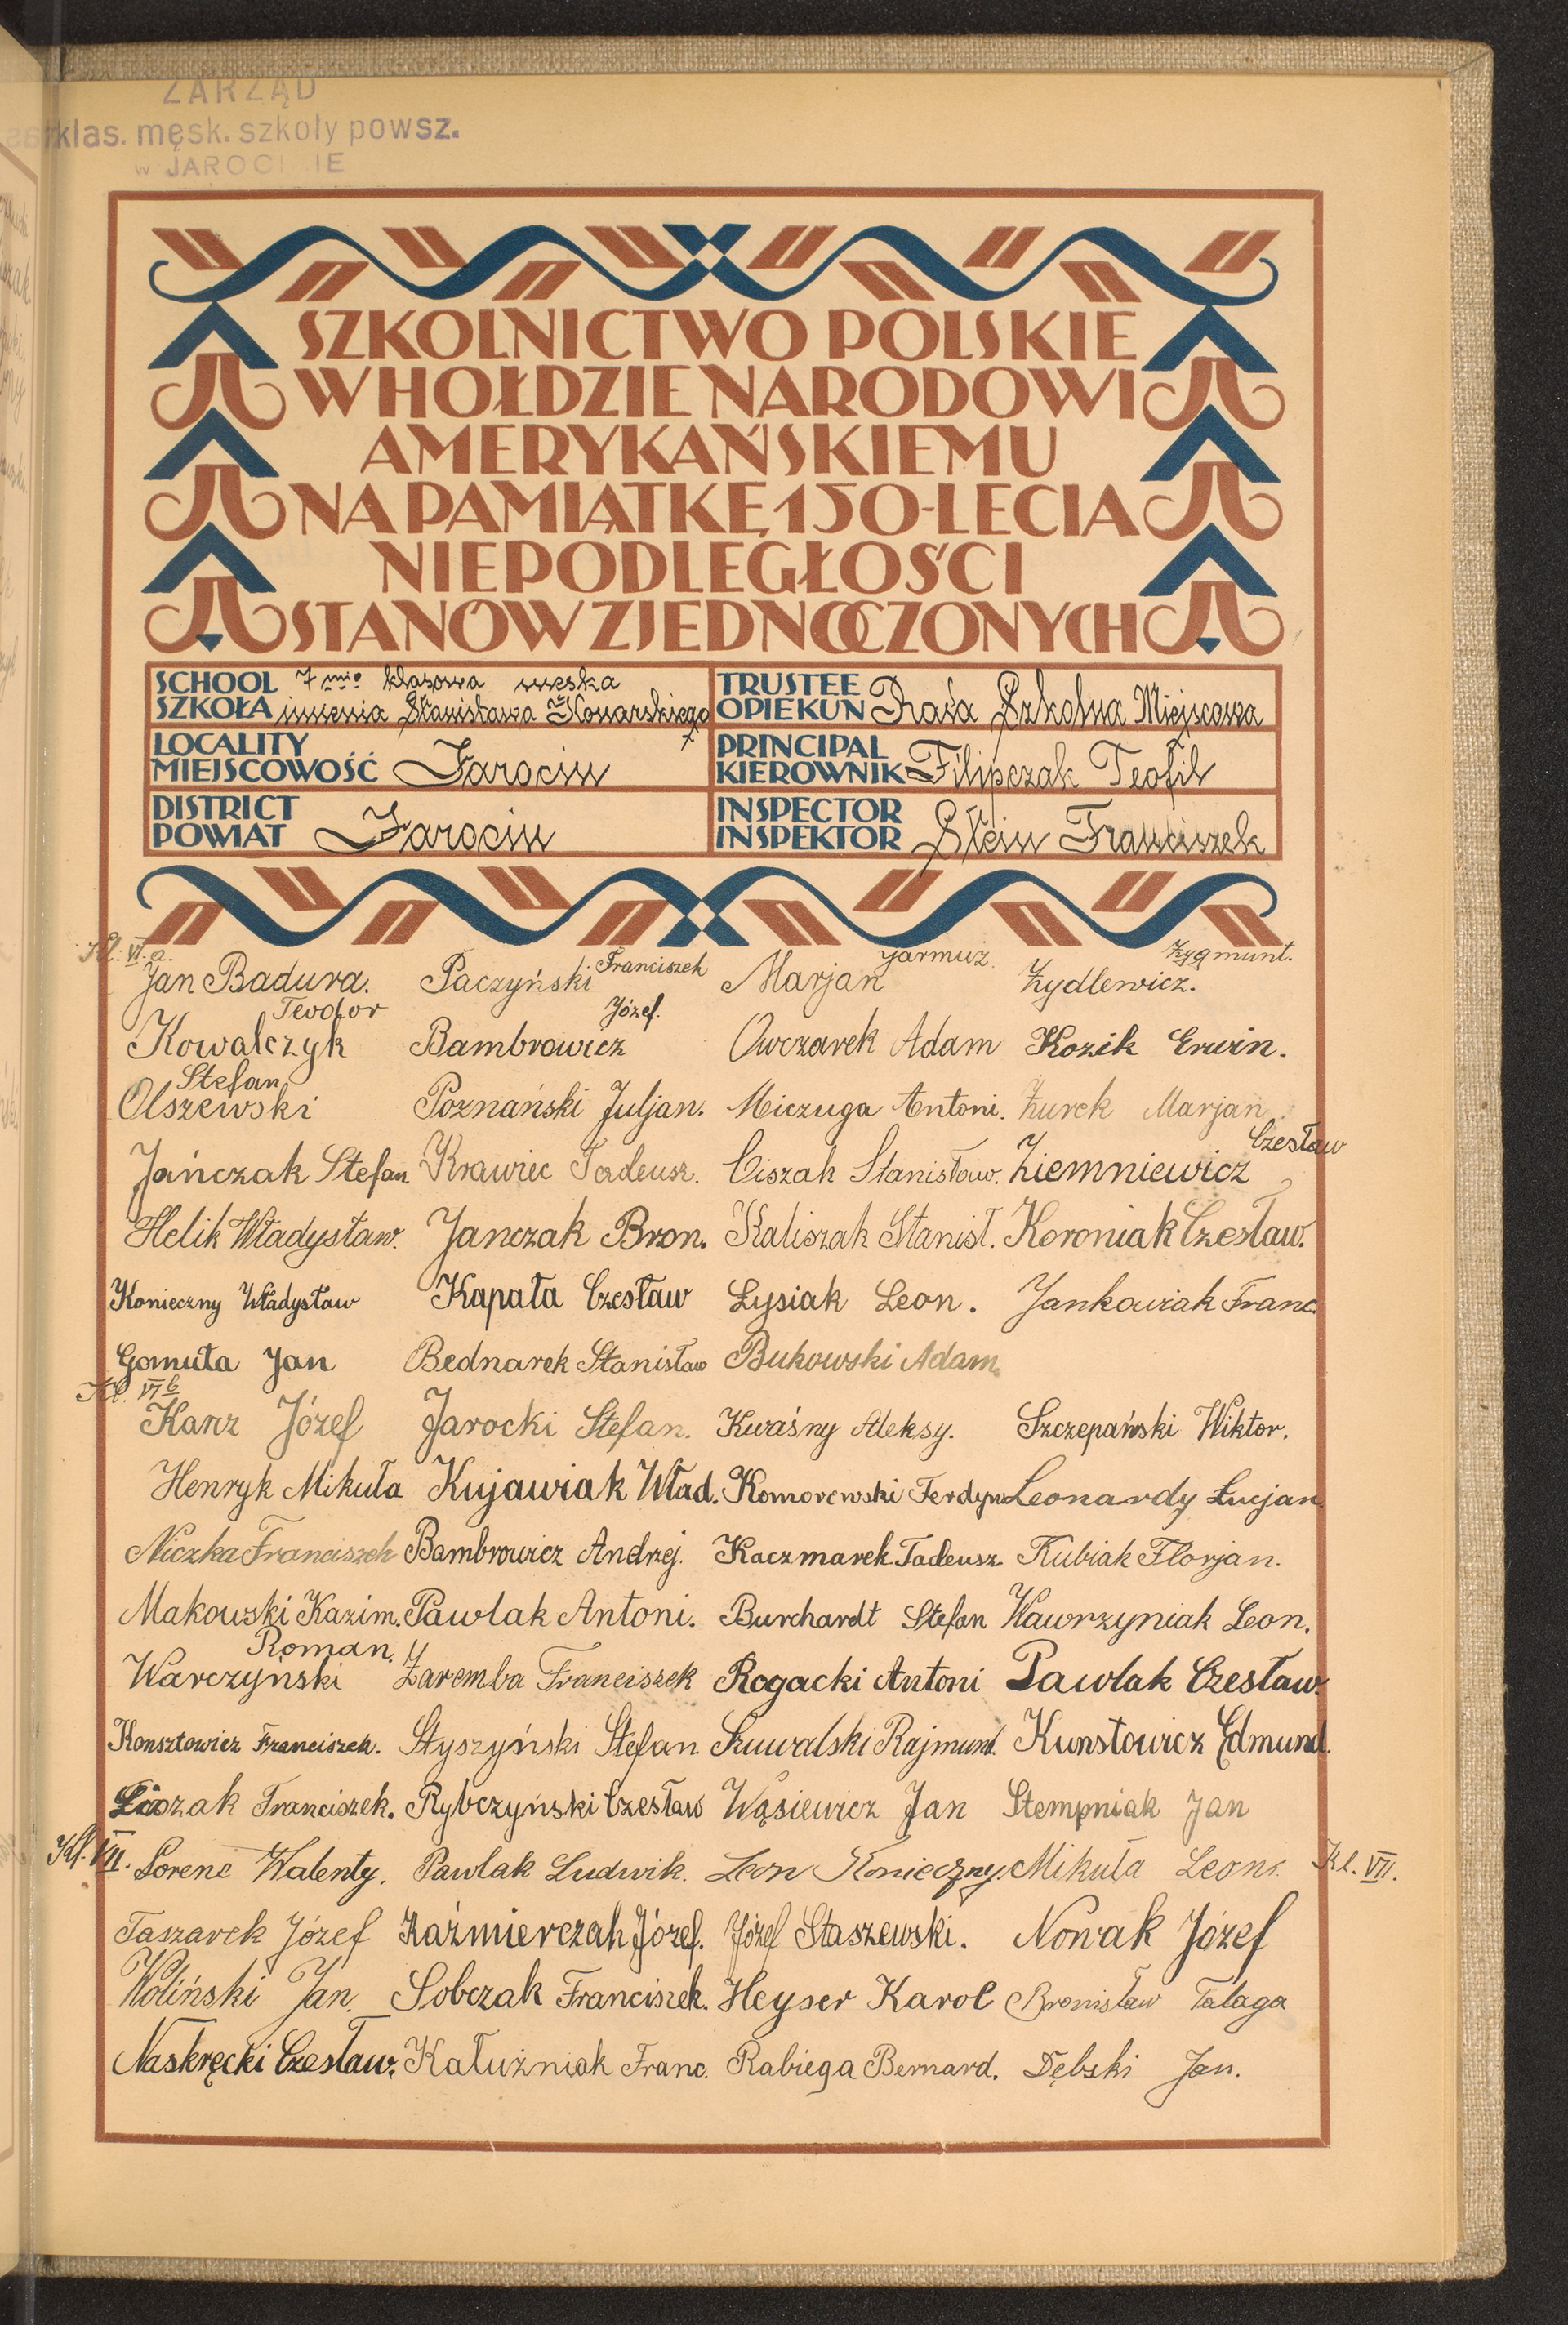 ZARZĄD
klas. męsk. szkoły powsz.
w JAROCINIE
SZKOLNICTWO POLSKIE
W HOŁDZIE NARODOWI
AMERYKAŃSKIEMU
NA PAMIĄTKĘ 150-LECIA
NIEPODLEGŁOŚCI
STANÓW ZJEDNOCZONYCH
SCHOOL 7 mio klasowa męska
SZKOŁA imienia Stanisława Konarskiego
TRUSTEE
OPIEKUN Rada Szkolna Miejscowa
LOCALITY
MIEJSCOWOŚĆ Jarocin
PRINCIPAL
KIEROWNIK Filipczak Teofil
DISTRICT
POWIAT Jarocin
INSPECTOR
INSPEKTOR Stein Franciszek
Kl. VI. a.
Jan Badura. Paczyński Franciszek Marjan Jarmuz. Żydlewicz. Zygmunt.
Kowalczyk Teodor Bambrowicz Józef. Owczarek Adam Kozik Erwin.
Olszewski Stefan Poznański Juljan. Miczuga Antoni. Żurek Marjan
Jańczak Stefan Krawiec Tadeusz. Ciszak Stanisław. Ziemniewicz Czesław
Helik Władysław. Janczak Bron. Kaliszak Stanisł. Koroniak Czesław.
Konieczny Władysław Kapała Czesław Łysiak Leon. Jankowiak Franc.
Gomuła Jan Bednarek Stanisław Bukowski Adam.
Kl. VI b
Kanz Józef Jarocki Stefan. Kwaśny Aleksy. Szczepański Wiktor.
Henryk Mikuła Kujawiak Wład. Komorewski Ferdyn. Leonardy Łucjan.
Niczka Franciszek Bambrowicz Andrzej. Kaczmarek Tadeusz Kubiak Florjan.
Makowski Kazim. Pawlak Antoni. Burchardt Stefan Wawrzyniak Leon.
Warczyński Roman. Zaremba Franciszek Rogacki Antoni Pawlak Czesław.
Konsztowicz Franciszek. Styszyński Stefan Szuwalski Rajmund. Kunstowicz Edmund.
Franciszek. Rybczyński Czesław Wąsiewicz Jan Stempniak Jan
Kl. VII. Lorenc Walenty. Pawlak Ludwik. Leon Konieczny. Mikuła Leon. Kl. VII.
Taszarek Józef Kaźmierczak Józef. Józef Staszewski. Nowak Józef
Woliński Jan. Sobczak Franciszek. Heyser Karol Bronisław Talaga
Naskręcki Czesław. Kałużniak Franc. Rabiega Bernard. Dębski Jan.